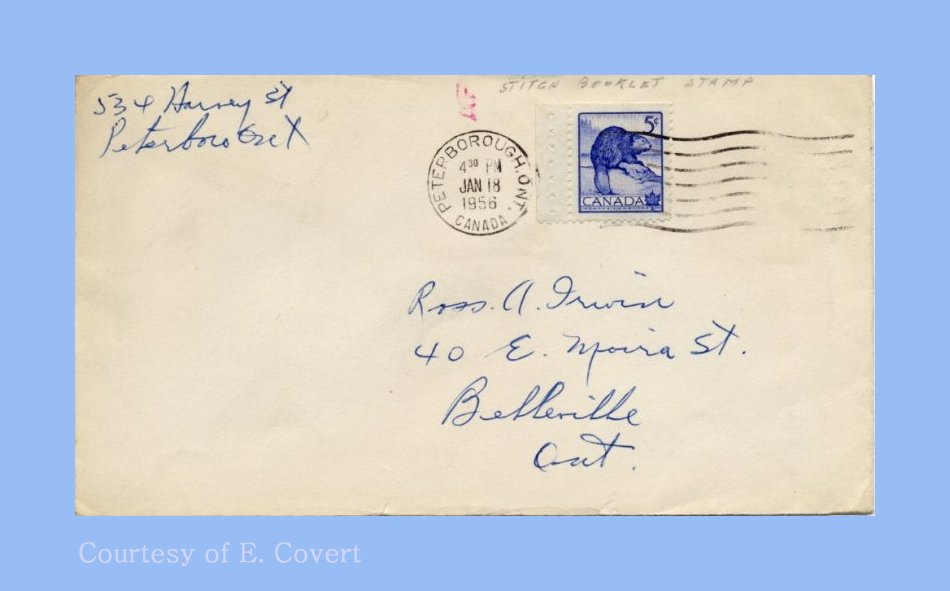 STITCH BOOKLET STAMP
534 Harvey St
Peterboro Ont
PETERBOROUGH, ONT.
4 30 PM
JAN 18
1956
CANADA
5¢
CANADA
Ross. A. Irwin
40 E. Moira St.
Belleville
Ont.
Courtesy of E. Covert